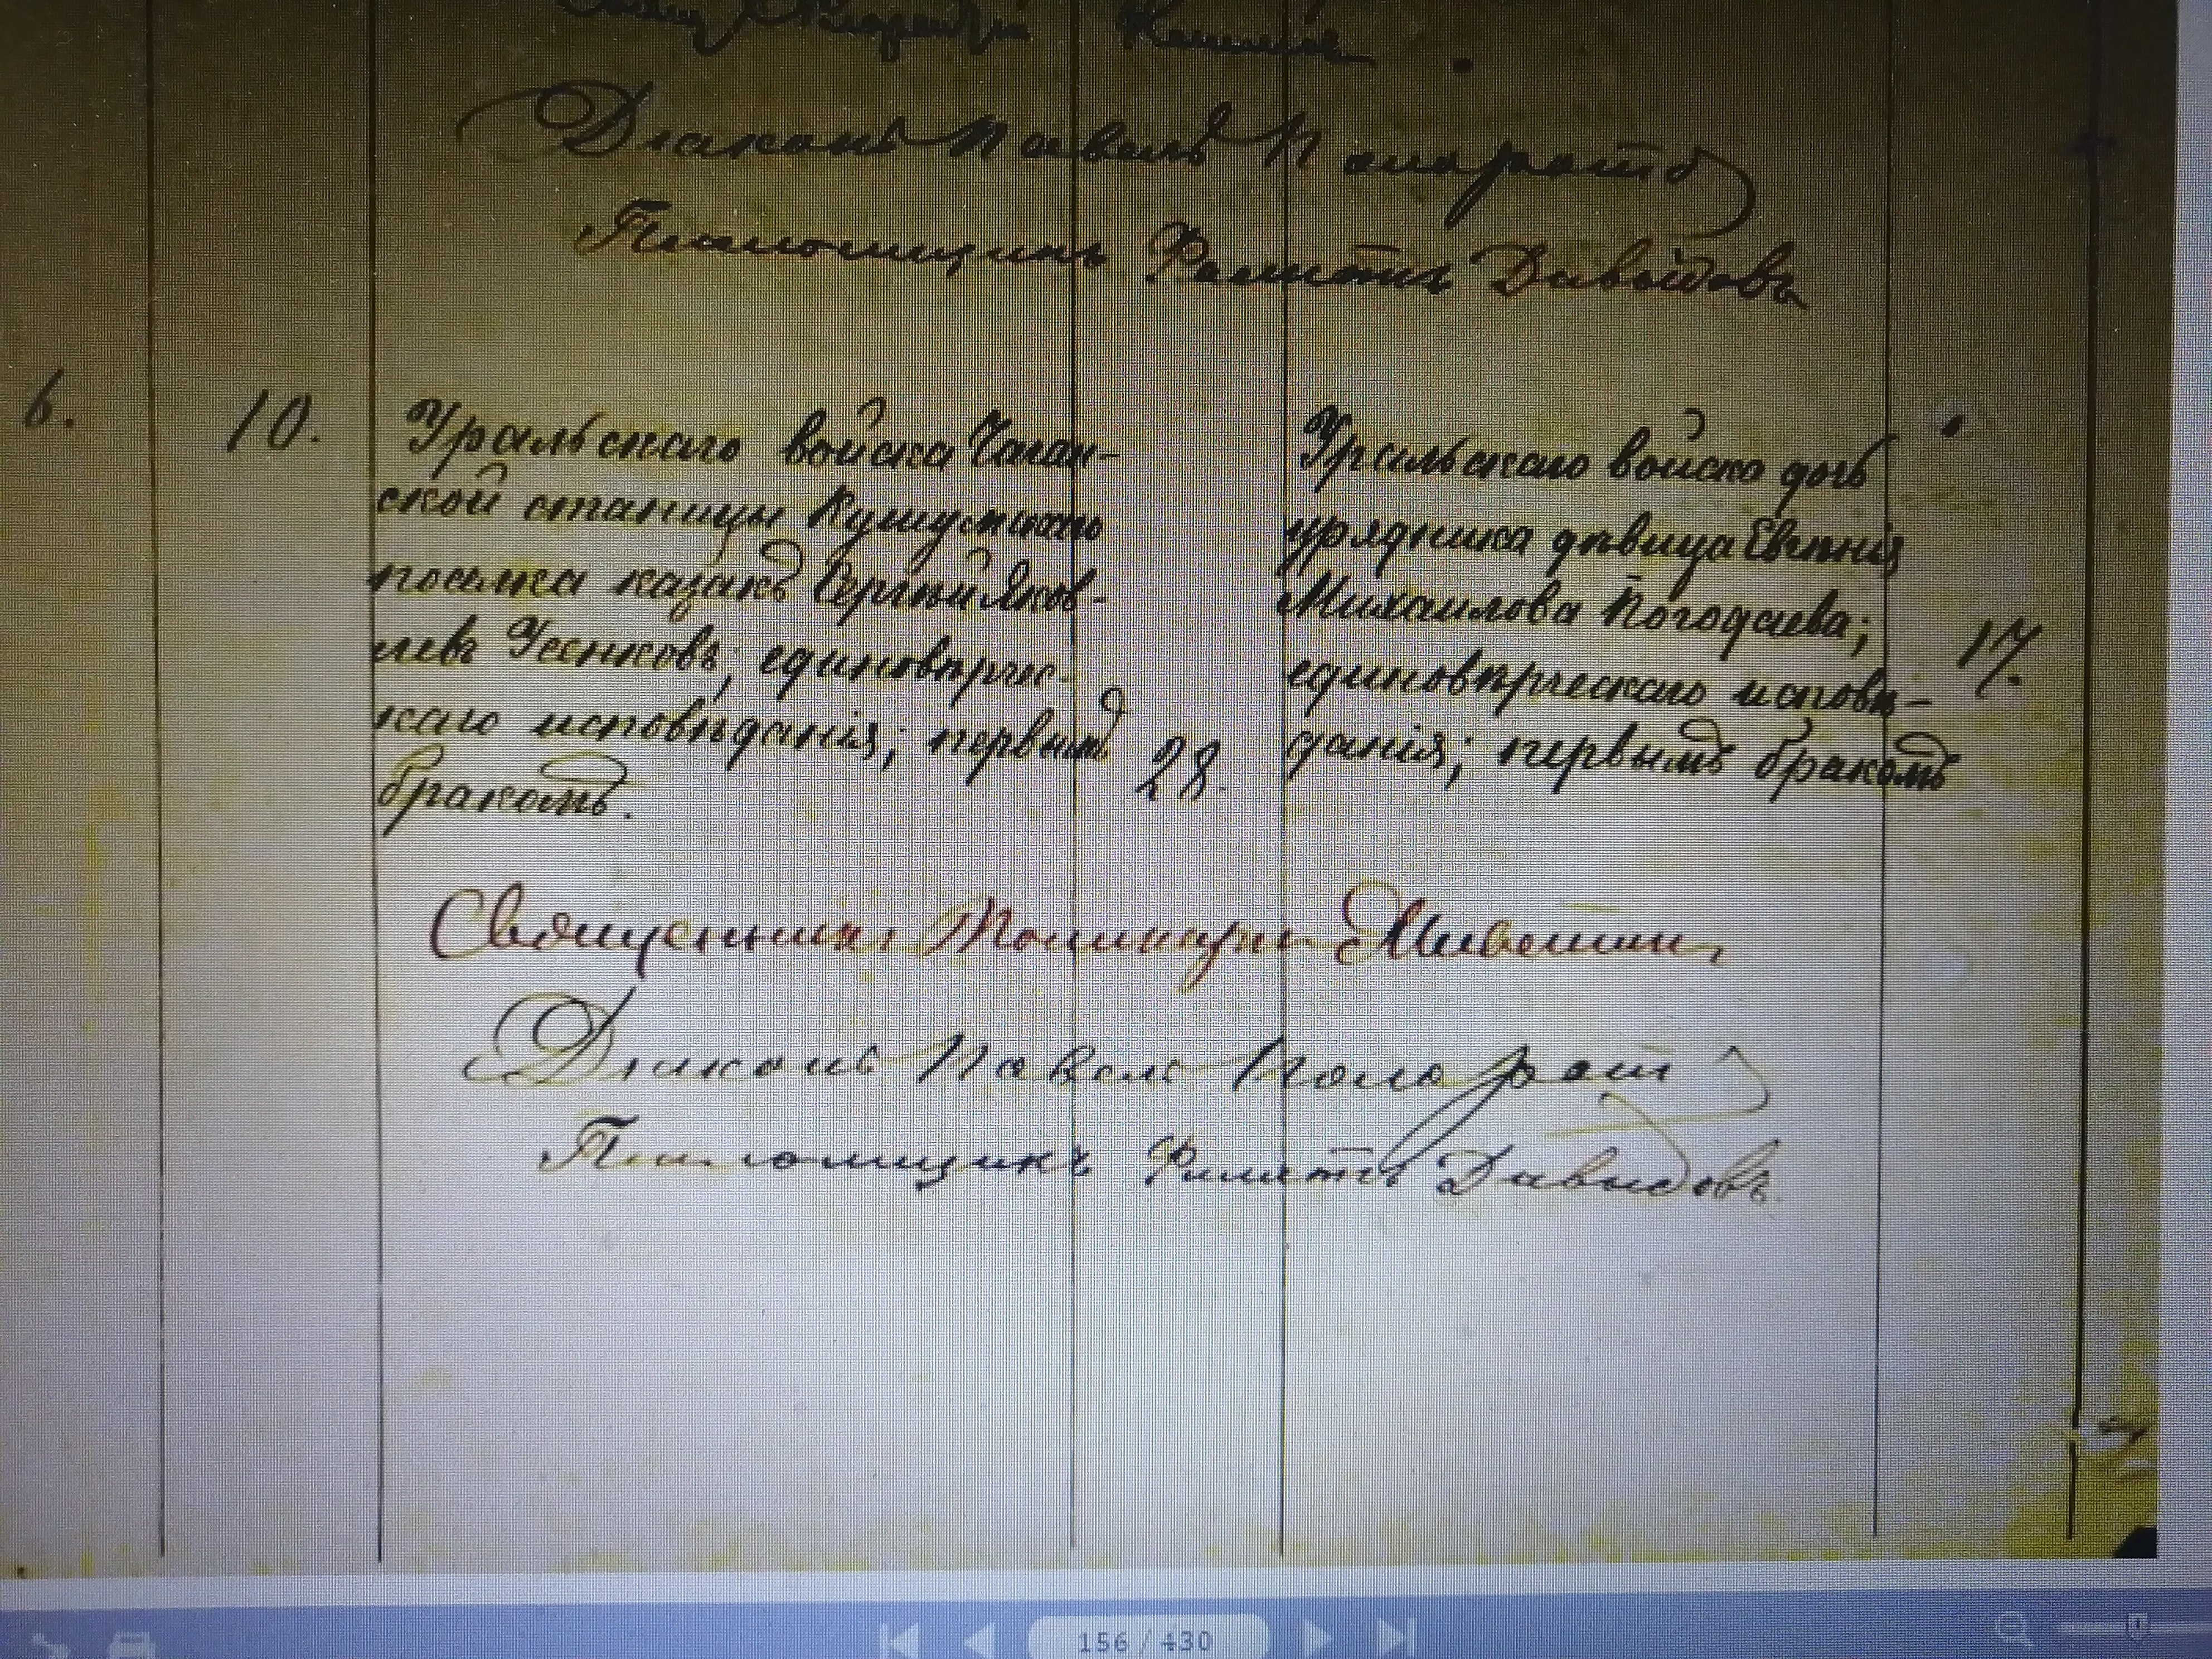 Діаконъ Павелъ
Псаломщикъ Давыдовъ
6.
10.
Уральскаго войска Чаган-
ской станицы Кушумскаго
поселка казакъ Сергѣй Яков-
левъ единовѣрчес-
каго исповѣданія; первымъ
бракомъ.
28.
Уральскаго войска дочь
урядника дѣвица Евгенія
Михаилова Погодаева;
единовѣрческаго исповѣ-
данія; первымъ бракомъ
17.
Священникъ
Діаконъ Павелъ
Псаломщикъ Давыдовъ
156 / 430